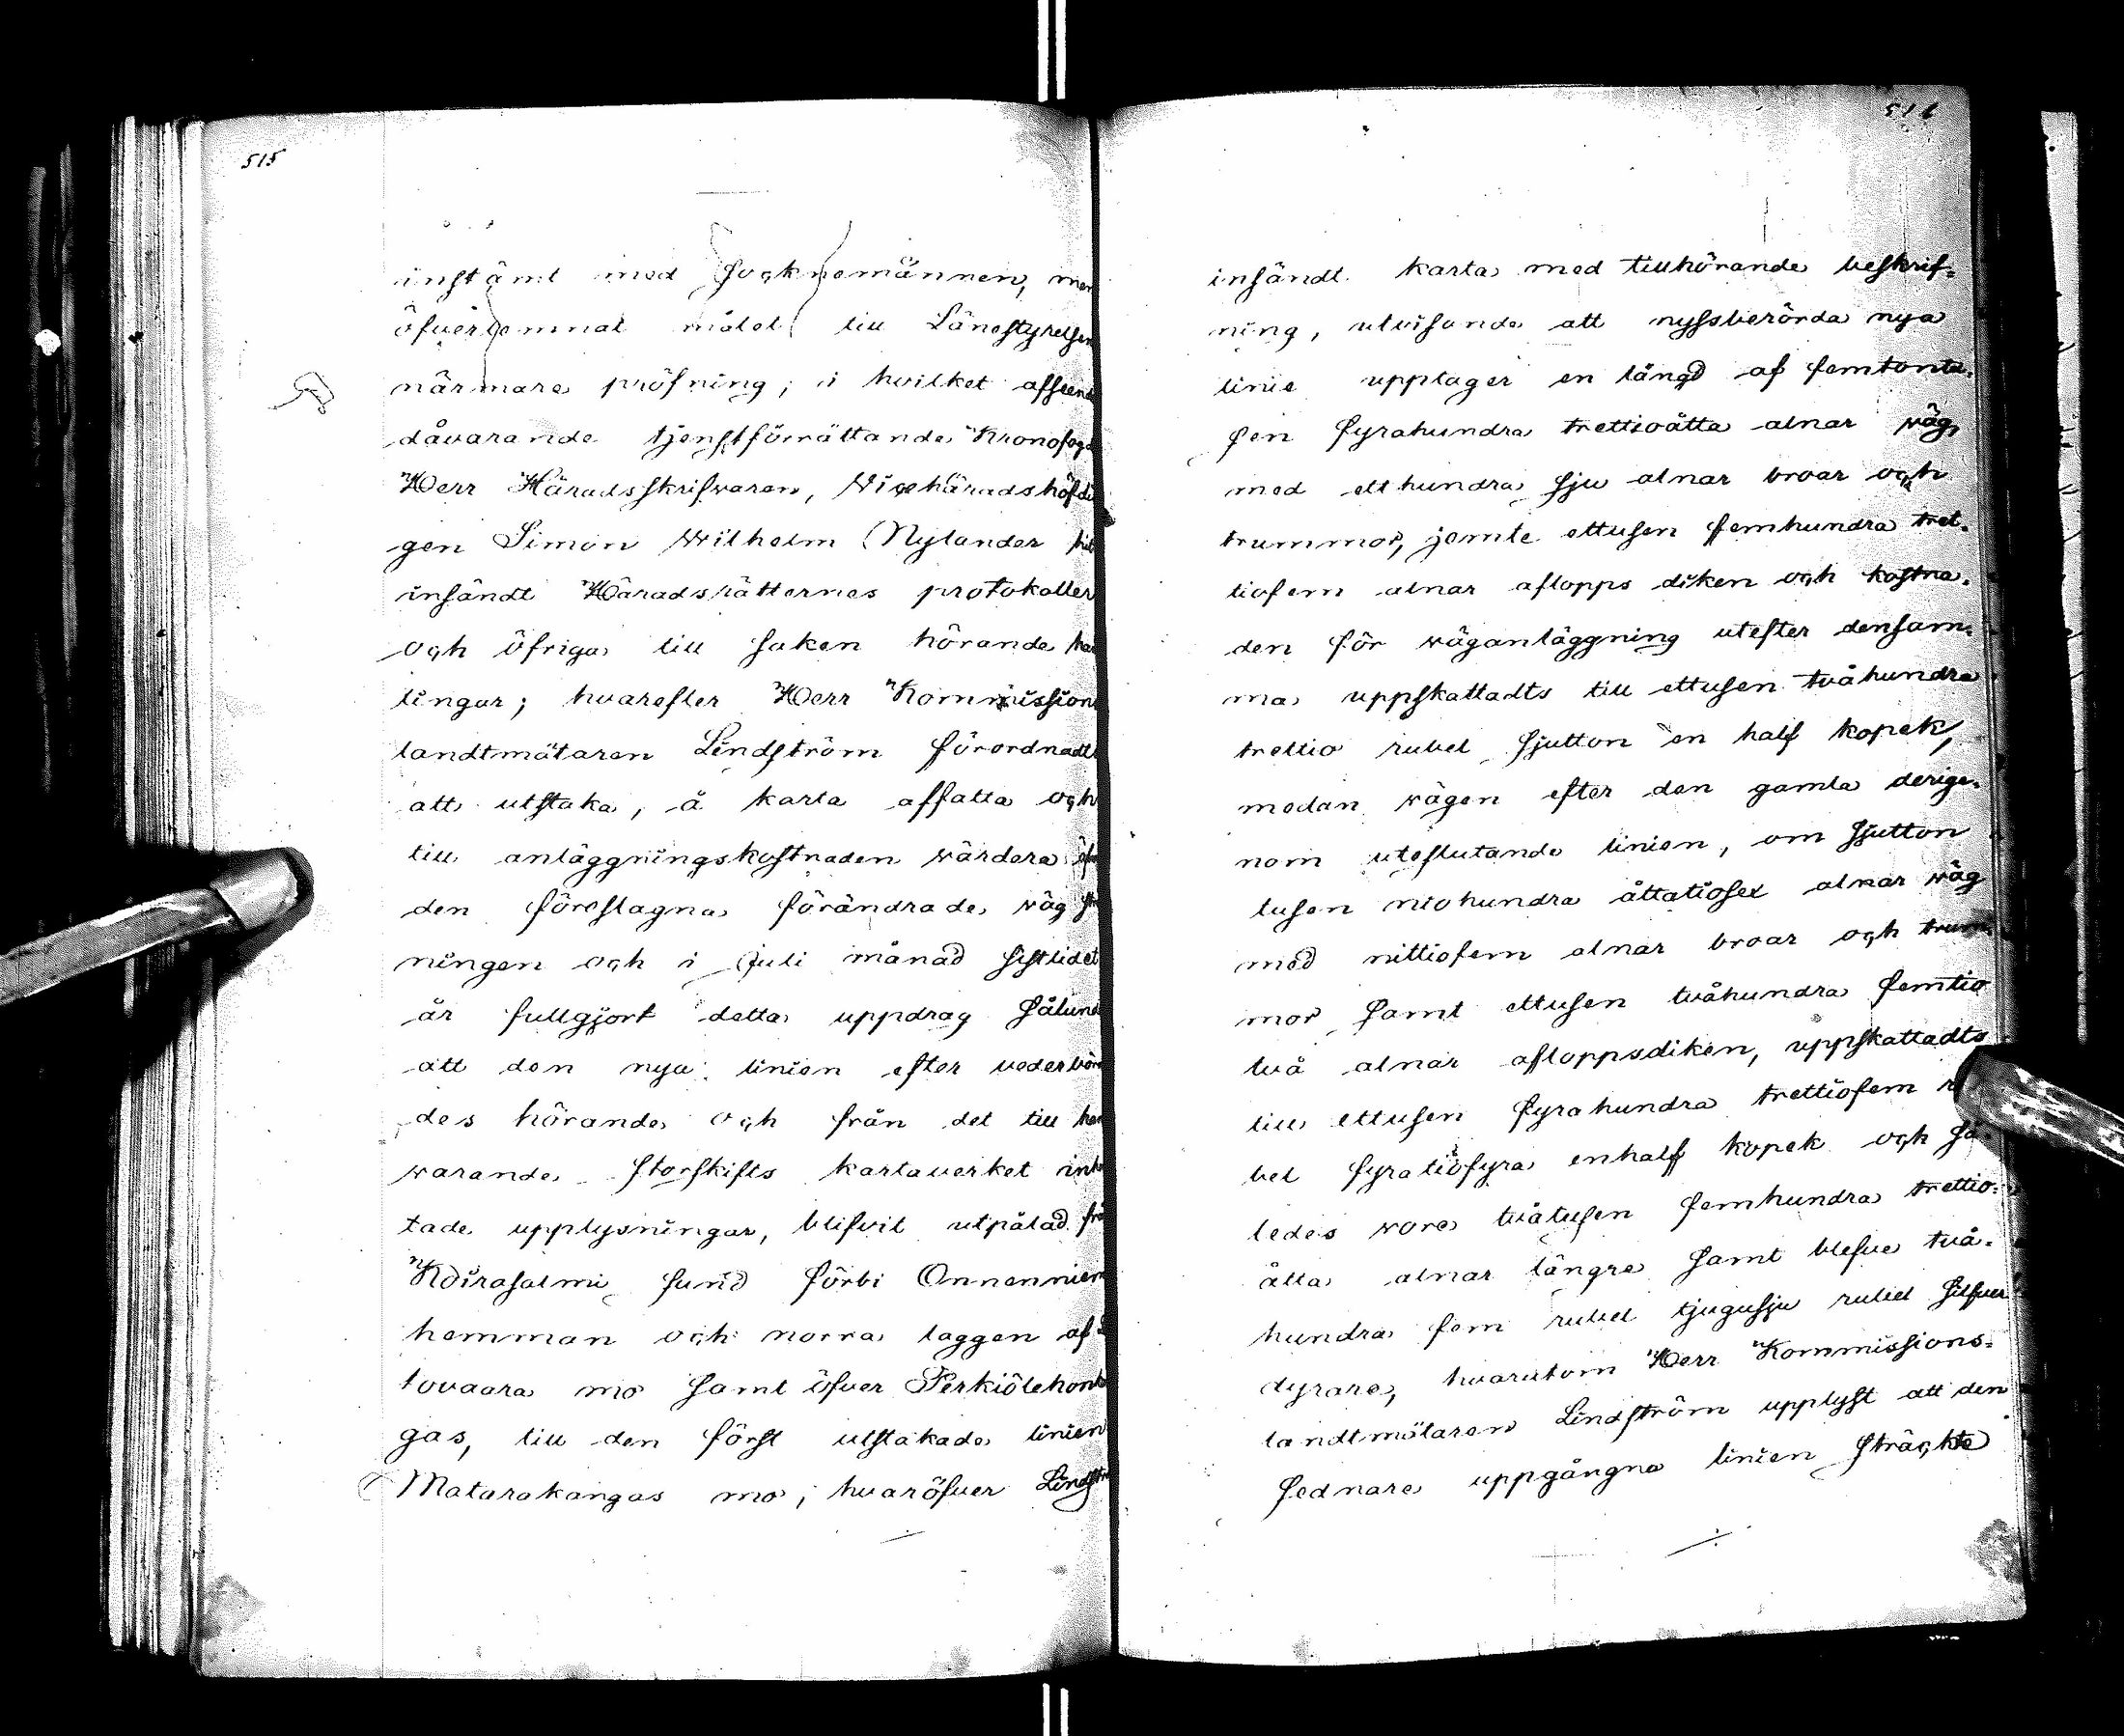 515
instämt med Socknemännen, men
öfverlemnat målet till Länestyrelsen
närmare pröfning; i hvilket afseend
dåvarande tjenstförrättande Kronofogd
Herr Häradsskrifvaren, Vicehäradshöfdi
gen Simon Wilhelm Nylander hit
insändt Häradsrätternes protokoller
och öfriga till saken hörande han
lingar; hvarefter Herr Kommissions
landtmätaren Lindström förordnadt
att utstaka, å karta affatta och
till anläggningskostnaden värdera
den föreslagna förändrade väg
ningen och i Juli månad sistlidet
år fullgjort detta uppdrag sålund
att den nya linien efter vederbör
des hörande och från det till han
warande storskifts kartaverket inh
tade upplysningar, blifvit utpålad frå
Koirasalmi sund förbi Onnenniem
hemman och norra laggen af
tovaara mo samt öfver Perkiölehonk
gas, till den först utstakade linien
Matarakangas mo; hvaröfver Lindströ
516
insändt karta med tillhörande beskrif-
ning, utvisande att nyssberörda nya
linie upptager en längd af femtontu-
sen fyrahundra trettioåtta alnar väg,
med etthundra sju alnar broar och
trummor, jemte ettusen femhundra tret-
tiofem alnar aflopps diken och kostna-
den för väganläggning utefter densam-
ma uppskattadts till ettusen tvåhundra
trettio rubel sjutton en half kopek,
medan vägen efter den gamla derige-
nom uteslutande linien, om sjutton
tusen niohundra åttatiosex alnar väg
med nittiofem alnar broar och trum-
mor samt ettusen tvåhundra femtio
två alnar afloppsdiken, uppskattadts
till ettusen fyrahundra trettiofem ru
bel fyratiofyra enhalf kopek och så-
ledes vore tvåtusen femhundra trettio-
åtta alnar längre samt blefve två-
hundra fem rubel tjugusju rubel silfver
dyrare, hvarutom Herr Kommissions-
landtmätaren Lindström upplyst att den
sednare uppgångna linien sträckte